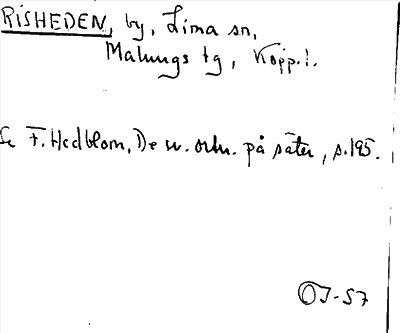 RISHEDEN, by, Lima sn,
Malungs tg, Kopp.l.
Se F. Hedblom, De sv. ortn. på säter, s.195.
OJ-57